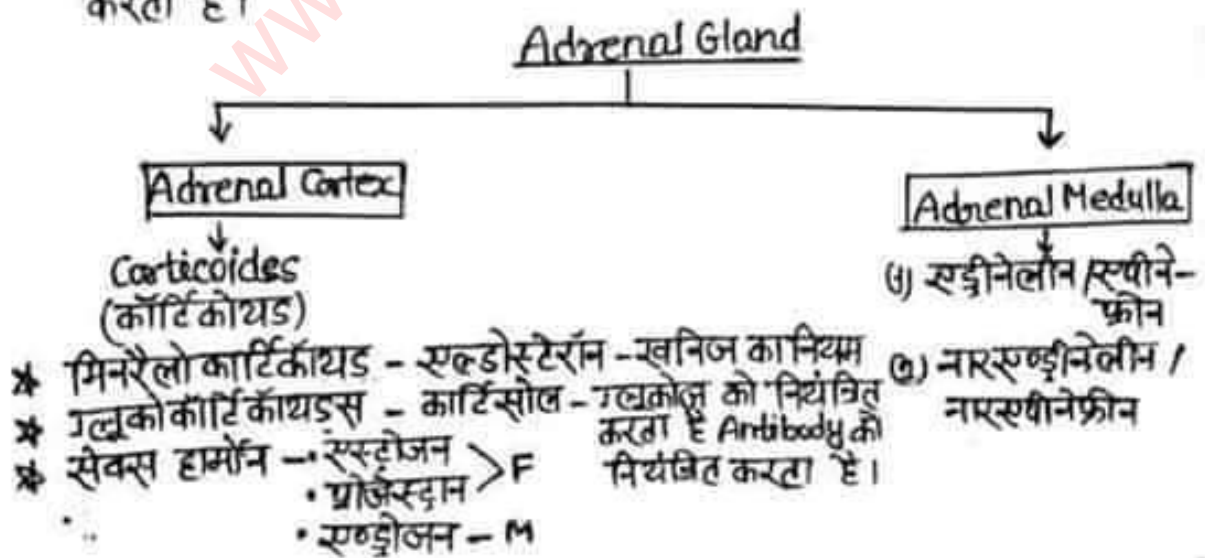 करता है।
Adrenal Gland
Adrenal Cortex
Corticoides
(कॉर्टिकोयड)
* मिनरैलोकार्टिकॉयड - एल्डोस्टेरॉन - खनिज का नियम
* ग्लूकोकॉर्टिकॉयड्स - कार्टिसोल - ग्लूकोज को नियंत्रित
करता है Antibody को
नियंत्रित करता है।
* सेक्स हार्मोन - • एस्ट्रोजन
• प्रोजेस्ट्रान > F
• एण्ड्रोजन - M
Adrenal Medulla
(1) एड्रीनेलीन / एपीने-
फ्रीन
(2) नारएण्ड्रीनेलीन /
नारएपीनेफ्रीन